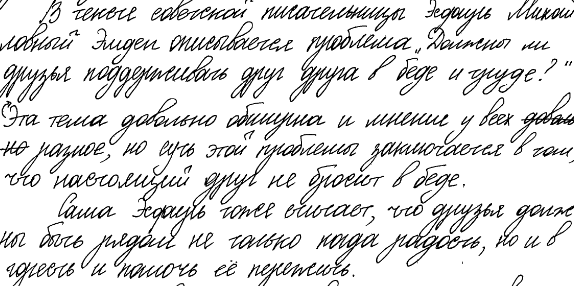 В тексте советской писательницы Эсфирь Михай
ловны Эмден описывается проблема „Должны ли
друзья поддерживать друг друга в беде и нужде?"
"Эта тема довольно обширна и мнение у всех доволь
но разное, но суть этой проблемы заключается в том,
что настоящий друг не бросит в беде.
Сама Эсфирь тоже считает, что друзья долж
ны быть рядом не только когда радость, но и в
горесть и помочь её пережить.